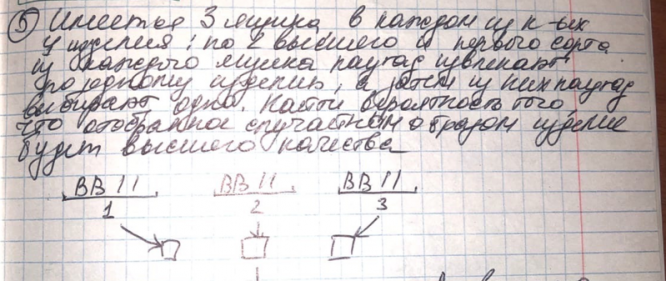 ⑤ Имеется 3 ящика в каждом из к-ых
4 изделия: по 2 высшего и первого сорта
из каждого ящика наугад извлекают
по одному изделию, а затем из них наугад
выбирают одно. Найти вероятность того,
что отобранное случайным образом изделие
будет высшего качества
ВВ11 ВВ11 ВВ11
1 2 3